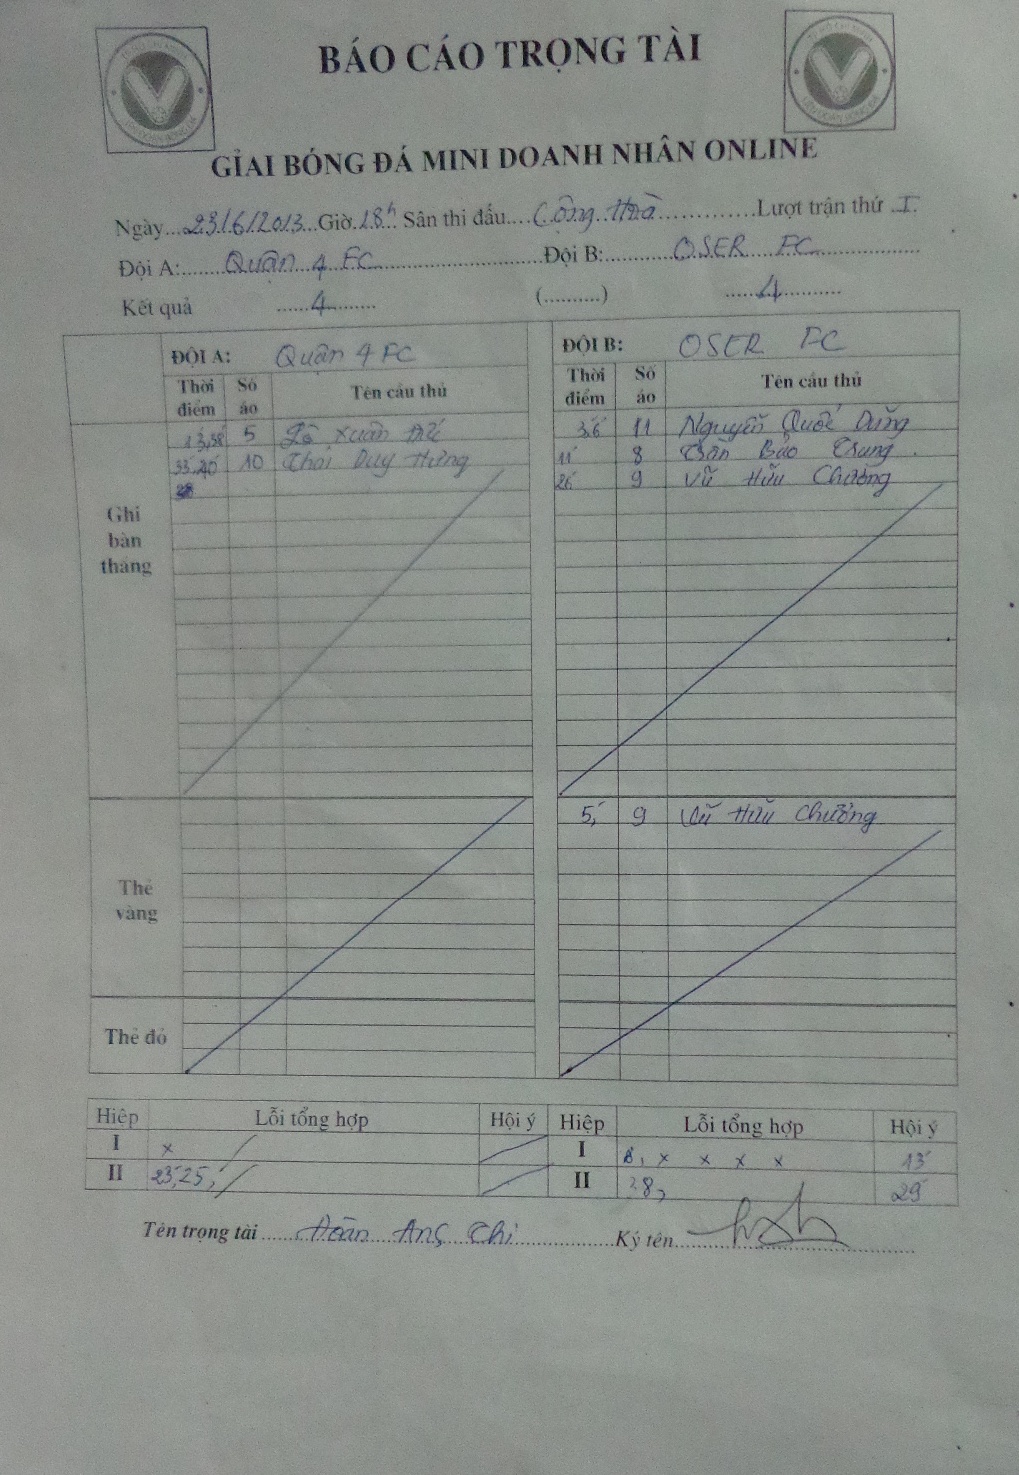 BÁO CÁO TRỌNG TÀI
GIẢI BÓNG ĐÁ MINI DOANH NHÂN ONLINE
Ngày...23/6/2013...Giờ.18h Sân thi đấu....Cộng Hoà..............Lượt trận thứ ..I.
Đội A:.......Quận 4 FC.......................Đội B:............OSER FC..................
Kết quả .....4........... (..........) ......4............
ĐỘI A: Quận 4 FC ĐỘI B: OSER FC
Thời điểm Số áo Tên cầu thủ Thời điểm Số áo Tên cầu thủ
Ghi bàn thắng
5 Xuân 11 Nguyễn Quốc Dũng
10 Thái Duy Hưng 11 8 Trần Bảo Trung
26 9 Vũ Hữu Chương
Thẻ vàng
5, 9 Vũ Hữu Chương
Thẻ đỏ
Hiệp Lỗi tổng hợp Hội ý Hiệp Lỗi tổng hợp Hội ý
I x I 8, x x x x 13
II 23, 25, II 28, 29
Tên trọng tài ......Đoàn Chi....................Ký tên